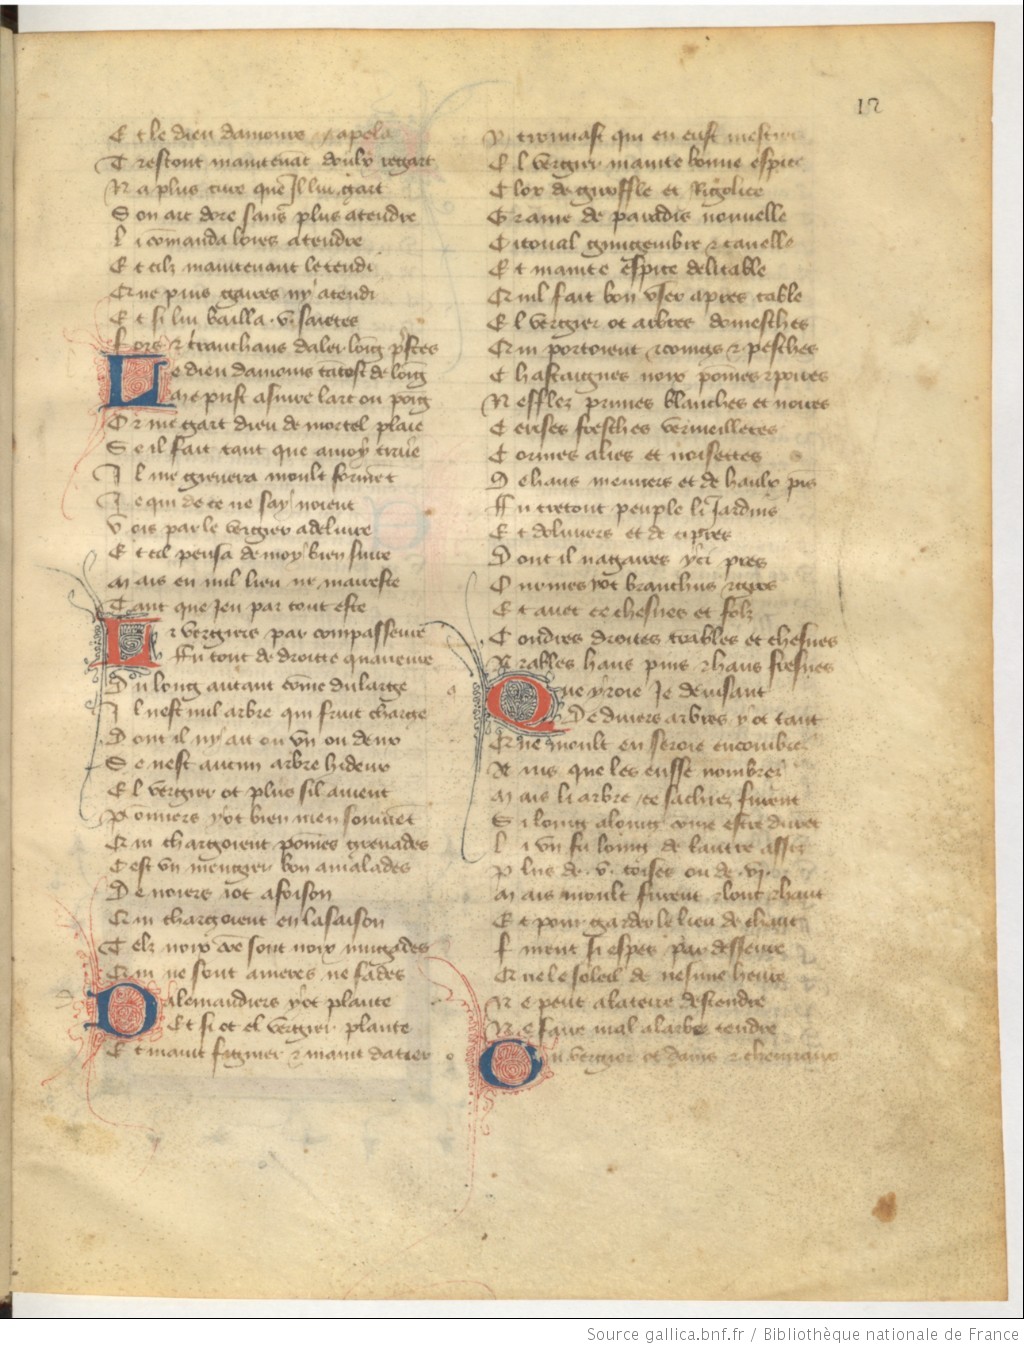 12
Et le dieu damours apela
Trestout maintenāt doulx regart
Na plus cure que Il lui gart
Son arc dore sans plus atendre
Li cōmanda lores a tendre
Et cilz maintenant le tendi
Qui ne puis gaires ny atendi
Et si lui bailla .v. saietes
Fors & tranchans daler loing prestes
Le dieu damours tātost de loing
Me prist a suivre larc ou poing
Or me gart dieu de mortel plaie
Se il fait tant que a moy traie
Il me grevera moult formēt
Je qui de ce ne say noient
Vois par le vergier a delivre
Et cil pensa de moy bien suivre
Mais en nul lieu ne mareste
Tant que Jeu par tout este
Le vergiers par compasseure
Fu tout de droitte quarreure
Du long autant cōme du large
Il nest nul arbre qui fruit charge
Dont il ny ait ou vn ou deux
Se nest aucun arbre hideux
El vergier ot plus sil ament
Pōmiers yot bien men souuēt
Qui chargoient pōmes grenades
Cest vn mengier bon a malades
De noiers iot a foison
Qui chargoient en la saison
Telz noix cōe sont noix mugades
Qui ne sont ameres ne fades
Dalemandiers yot plante
Et si ot el vergier plante
Et maint figuier & maint datier
Y trouuast qui en eust mestier
El vergier mainte bonne espice
Clox de giroffle et Rigolice
Graine de paradis nouuelle
Citoual gingembre & canelle
Et mainte espice delitable
Qui fait bon vser apres table
El vergier ot arbres domesches
Qui portoient & coings & pesches
Chastaignes noix pōmes & poires
Neffles prunes blanches et noires
Cerises fresches vermeilletes
Cormes alies et noisettes
De haus lauriers et de haulx pins
Fu trestout peuple li Jardins
Et doliuiers et de cipres
Dont il na gaires yci pres
Ormes yot branchus & gros
Et auec ce chesnes et folz
Condres droites trables et chesnes
Erables haus pins & haus fresnes
Que yroie Je deuisant
De diuers arbres yot tant
Que moult en seroie encombre
Ains que les eusse nombrer
Mais li arbre ce sachiez furent
Si loing a loing cōme estre durent
Li vn fu loing de lautre assiz
Plus de .v. toises ou de .vi.
Mais moult furent long & haut
Et pour garder le lieu de chaut
Furent si espes par desseure
Que le soleil de nesune heure
Ne peut a la terre descendre
Ne faire mal a larbe tendre
Ou vergier ot dains & cheureaux
Source gallica.bnf.fr / Bibliothèque nationale de France